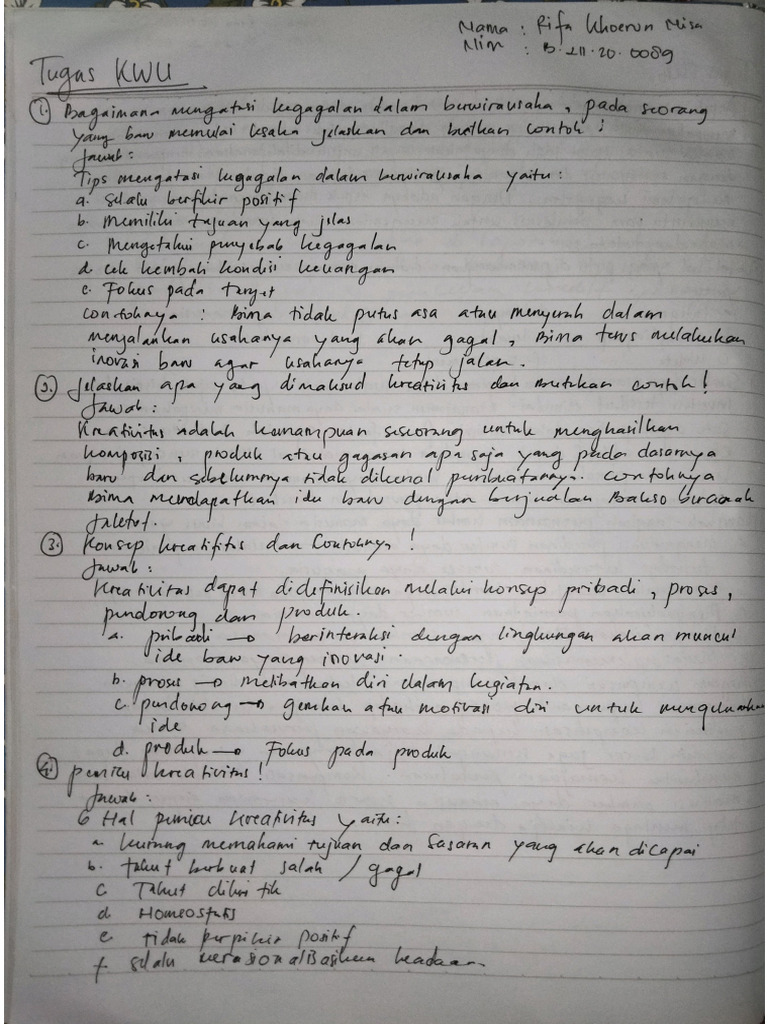 Nama : Rifa Khoerun Nisa
Nim : B.211.20.0089
Tugas KWU
1. Bagaimana mengatasi kegagalan dalam berwirausaha, pada seorang
yang baru memulai usaha jelaskan dan buatkan contoh !
Jawab :
Tips mengatasi kegagalan dalam berwirausaha yaitu :
a. selalu berfikir positif
b. Memiliki tujuan yang jelas
c. Mengetahui penyebab kegagalan
d. cek kembali kondisi keuangan
e. Fokus pada target
contohnya : Bima tidak putus asa atau menyerah dalam
menjalankan usahanya yang akan gagal, Bima terus melakukan
inovasi baru agar usahanya tetap jalan.
2. Jelaskan apa yang dimaksud kreativitas dan buatkan contoh !
Jawab :
Kreativitas adalah kemampuan seseorang untuk menghasilkan
komposisi, produk atau gagasan apa saja yang pada dasarnya
baru dan sebelumnya tidak dikenal pembuatannya. contohnya
Bima mendapatkan ide baru dengan berjualan Bakso
3. Konsep kreatifitas dan Contohnya !
Jawab :
Kreativitas dapat didefinisikan melalui konsep pribadi, proses,
pendorong dan produk.
a. pribadi → berinteraksi dengan lingkungan akan muncul
ide baru yang inovasi.
b. proses → melibatkan diri dalam kegiatan.
c. pendorong → gerakan atau motivasi diri untuk mengeluarkan
ide
d. produk → Fokus pada produk
4. pemicu kreativitas !
Jawab :
6 Hal pemicu kreativitas yaitu :
a. kurang memahami tujuan dan sasaran yang akan dicapai
b. takut berbuat salah / gagal
c Takut dikritik
d Homeostatis
e tidak berpikir positif
f selalu merasionalisasikan keadaan